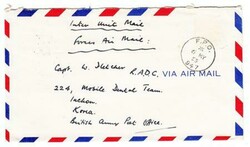 Inter Unit Mail
Forces Air Mail.
Capt. W. Fletcher R.A.D.C.
VIA AIR MAIL
224, Mobile Dental Team.
Inchon.
Korea.
British Army Post Office.
F.P.O.
947